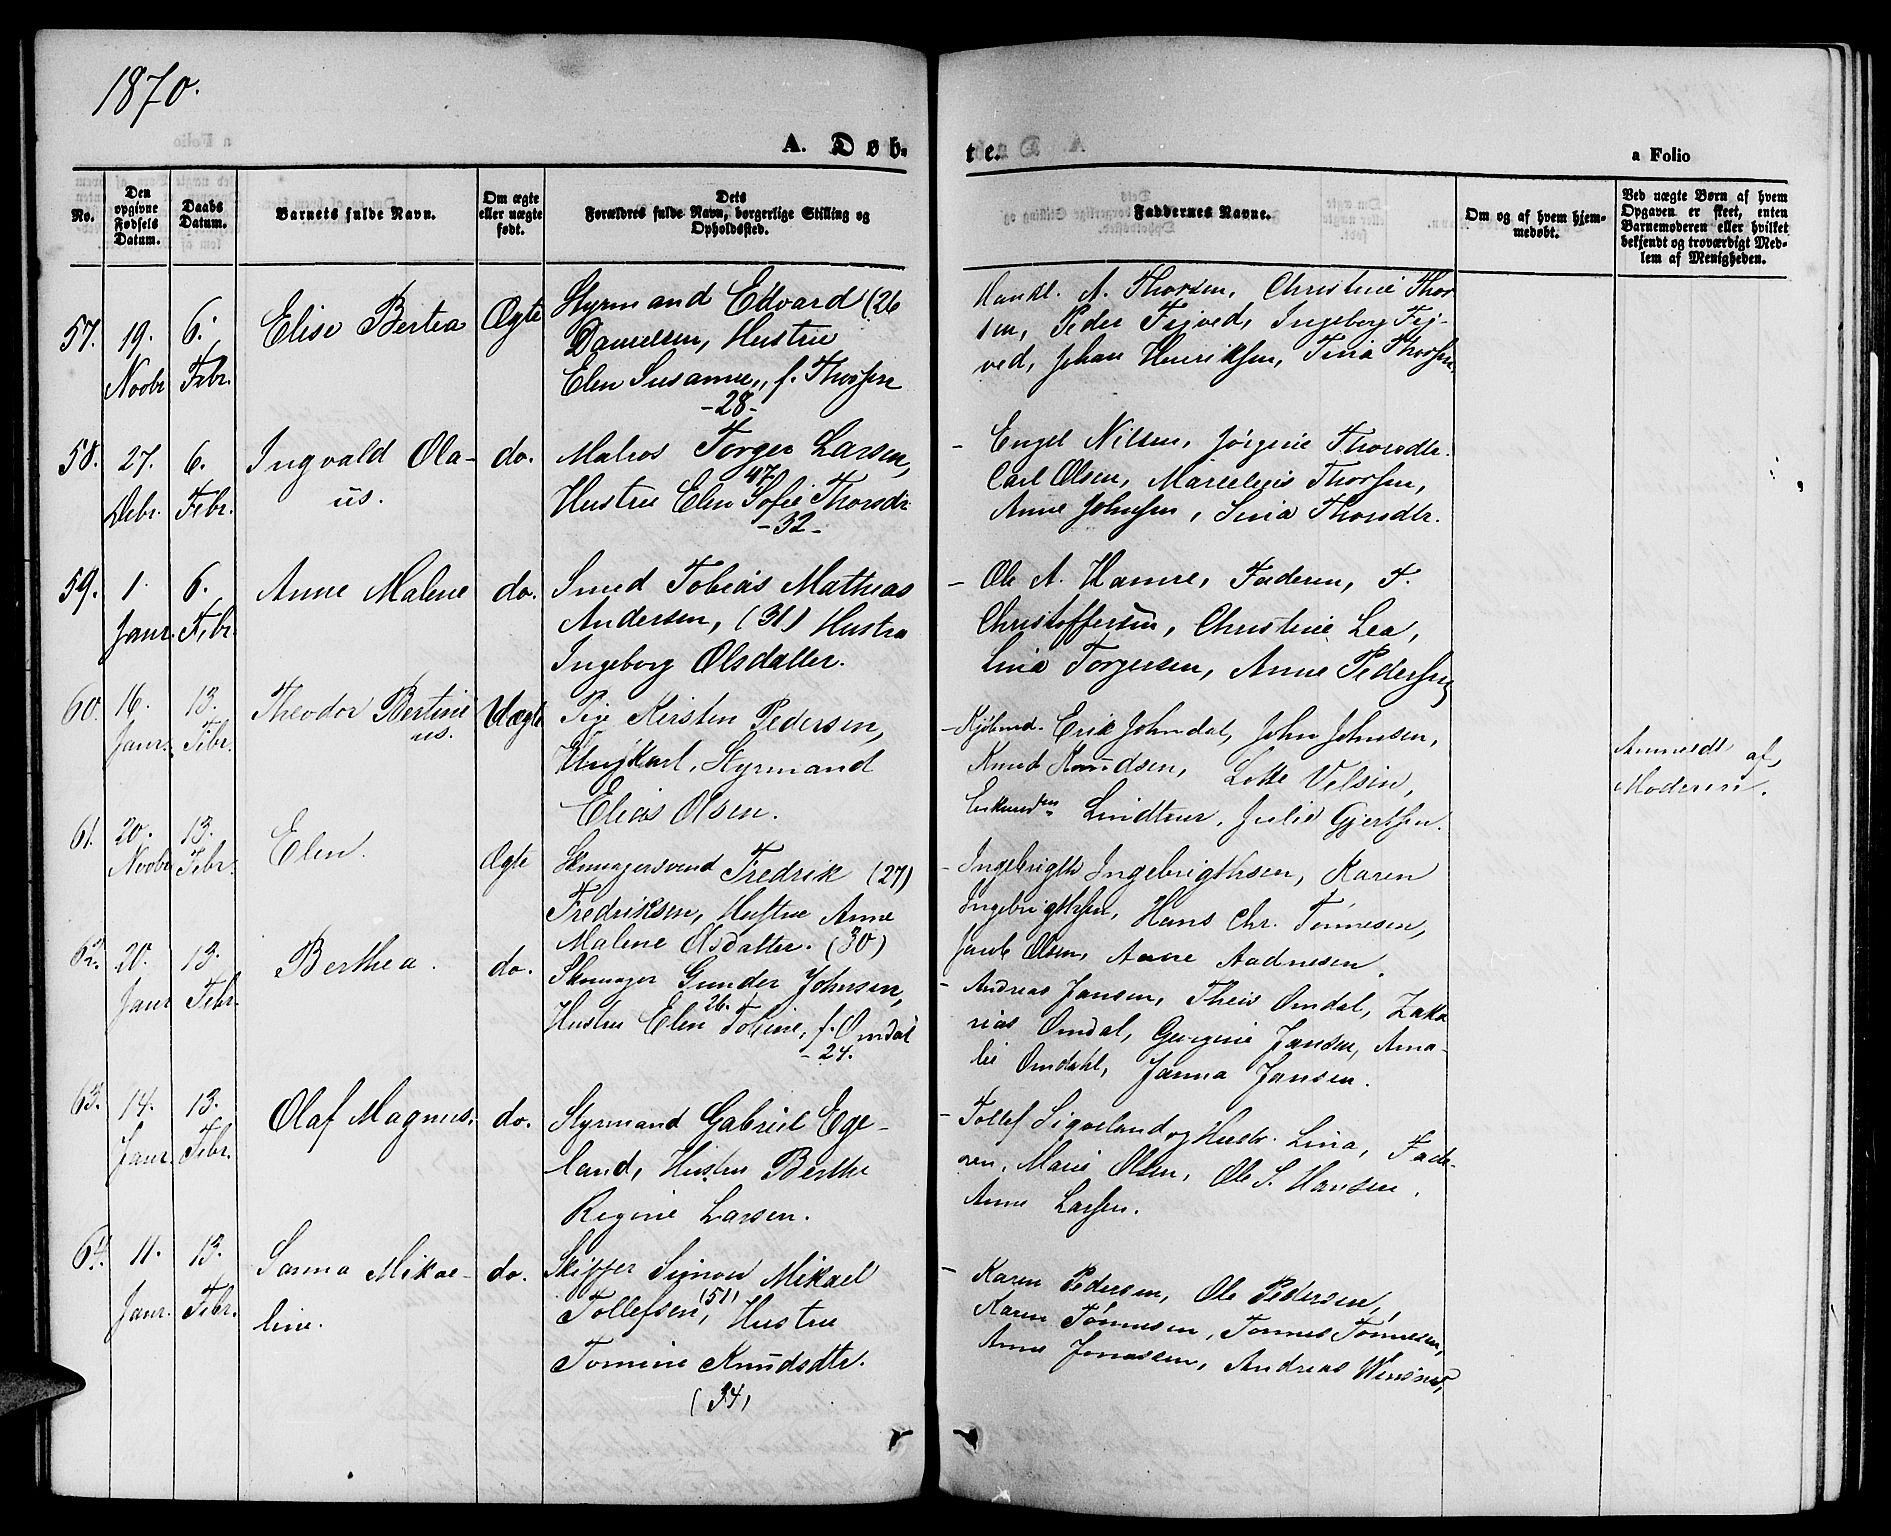 1870.
A. Døb-
te.
a Folio
No.
Den opgivne Fødsels Datum.
Daabs Datum.
Barnets fulde Navn.
Om ægte eller uægte født.
Dets Forældres fulde Navn, borgerlige Stilling og Opholdssted.
Faddernes Navne.
Om og af hvem hjem-
medøbt.
Ved uægte Børn af hvem
Opgaven er skeet, enten
Barnemoderen eller hvilket
bekjendt og troværdigt Med-
lem af Menigheden.
57. 19. Novbr 6. Febr. Elise Bertea Ægte
Styrmand Edvard (26
Danielsen, Hustru
Elen Susanne, f. Thorsen
-28-
A. Thorsen, Christine Thor
sen, Peder Fejved, Ingeborg Fej-
ved, Johan Henriksen, Tina Thorsen
58. 27. Debr. 6. Febr. Ingvald Ola-
us. do.
Matros Torger Larsen,
47
Hustru Elen Sofie Thorsdr
-32-
- Engel Nilsen, Jørgine Thorsdtr.
Carl Olsen, Marcelius Thorsen,
Anne Johnsen, Sina Thorsdtr.
59. 1. Janr. 6. Febr. Anne Malene do.
Smed Tobias Mathias
Andersen, (31) Hustru
Ingeborg Olsdatter.
- Ole A. Hamre, Faderen, T.
Christoffersen, Christine Lea,
Lina Torgersen, Anne Pedersen
60. 16. Janr. 13. Febr. Theodor Bertini
us. Uægte
Pige Kirsten Pedersen,
Ungkarl, Styrmand
Elias Olsen.
- Kjøbmd. Erik Johndal, John Johnsen,
Knud Knudsen, Lotte Velsin,
Lindtner, Julie Gjertsen.
Anmeldt af
Moderen.
61. 20. Novbr 13. Febr. Elen. Ægte
Skomagersvend Fredrik (27)
Fredriksen, Hustru Anne
Malene Olsdatter. (30)
- Ingebrigth Ingebrigthsen, Karen
Ingebrigthsen, Hans Chr. Tønnesen,
Jacob Olsen, Anne Aadnesen.
62. 20. Janr 13. Febr. Berthea. do.
Skomager Gunder Johnsen,
26.
Hustru Elen Toline, f. Omdal
-24.
- Andreas Jansen, Theis Omdal, Zaka
rias Omdal, Georgine Jansen, Ama-
lie Omdahl, Janna Jansen.
63. 14. Janr. 13. Febr. Olaf Magnus. do.
Styrmand Gabriel Ege-
land, Hustru Berthe
Regine Larsen.
- Tollef Sigveland og Hustr. Lina, Fade-
ren, Marie Olsen, Ole S. Hansen,
Anne Larsen.
64. 11. Janr. 13. Febr. Sanna Mikae-
line. do.
Skipper Simon Mikael
Tollefsen, (51) Hustru
Tomine Knudsdtr.
(34)
- Karen Pedersen, Ole Pedersen,
Karen Tønnesen, Tønnes Tønnesen,
Anne Jonassen, Andreas Wensnes,